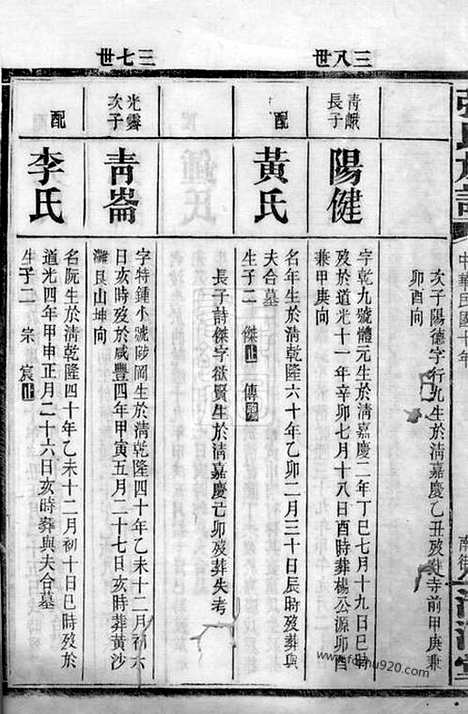 張氏族譜
中華民國十年
三八世
次子陽德字行九生於清嘉慶乙丑歿葬寺前甲庚兼
卯酉向
青峨
長子
陽健
字乾九號體元生於清嘉慶二年丁巳七月十九日巳時
歿於道光十一年辛卯七月十八日酉時葬楊公源卯酉
兼甲庚向
配
黃氏
名年生於清乾隆六十年乙卯二月三十日辰時歿葬與
夫合墓
生子二 傑止 傳殤
長子詩傑字欲賢生於清嘉慶己卯歿葬失考
三七世
光霽
次子
青崙
字特鍾小號陟岡生於清乾隆四十年乙未十二月初六
日亥時歿於咸豐四年甲寅五月二十七日亥時葬黃沙
艮山坤向
配
李氏
名阮生於清乾隆四十年乙未十二月初十日巳時歿於
道光四年甲申正月二十六日亥時葬與夫合墓
生子二 宗 宸止